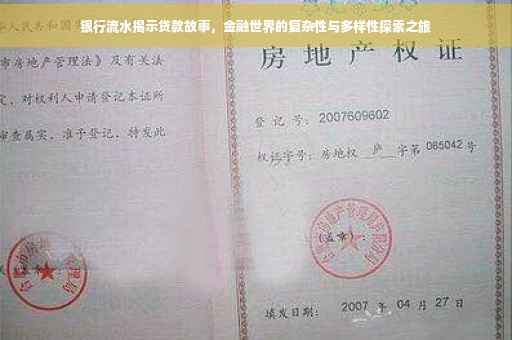 银行流水揭示贷款故事，金融世界的复杂性与多样性探索之旅
华人民共和国
市房地产管理法》及有关
定，对权利人申请登记本证所
审查属实，准予登记，特发此
房地产权证
登记号：2007609602
权证字号：房地权 庐 字第 065042 号
（盖章）：
填发日期：2007 年 04 月 27 日